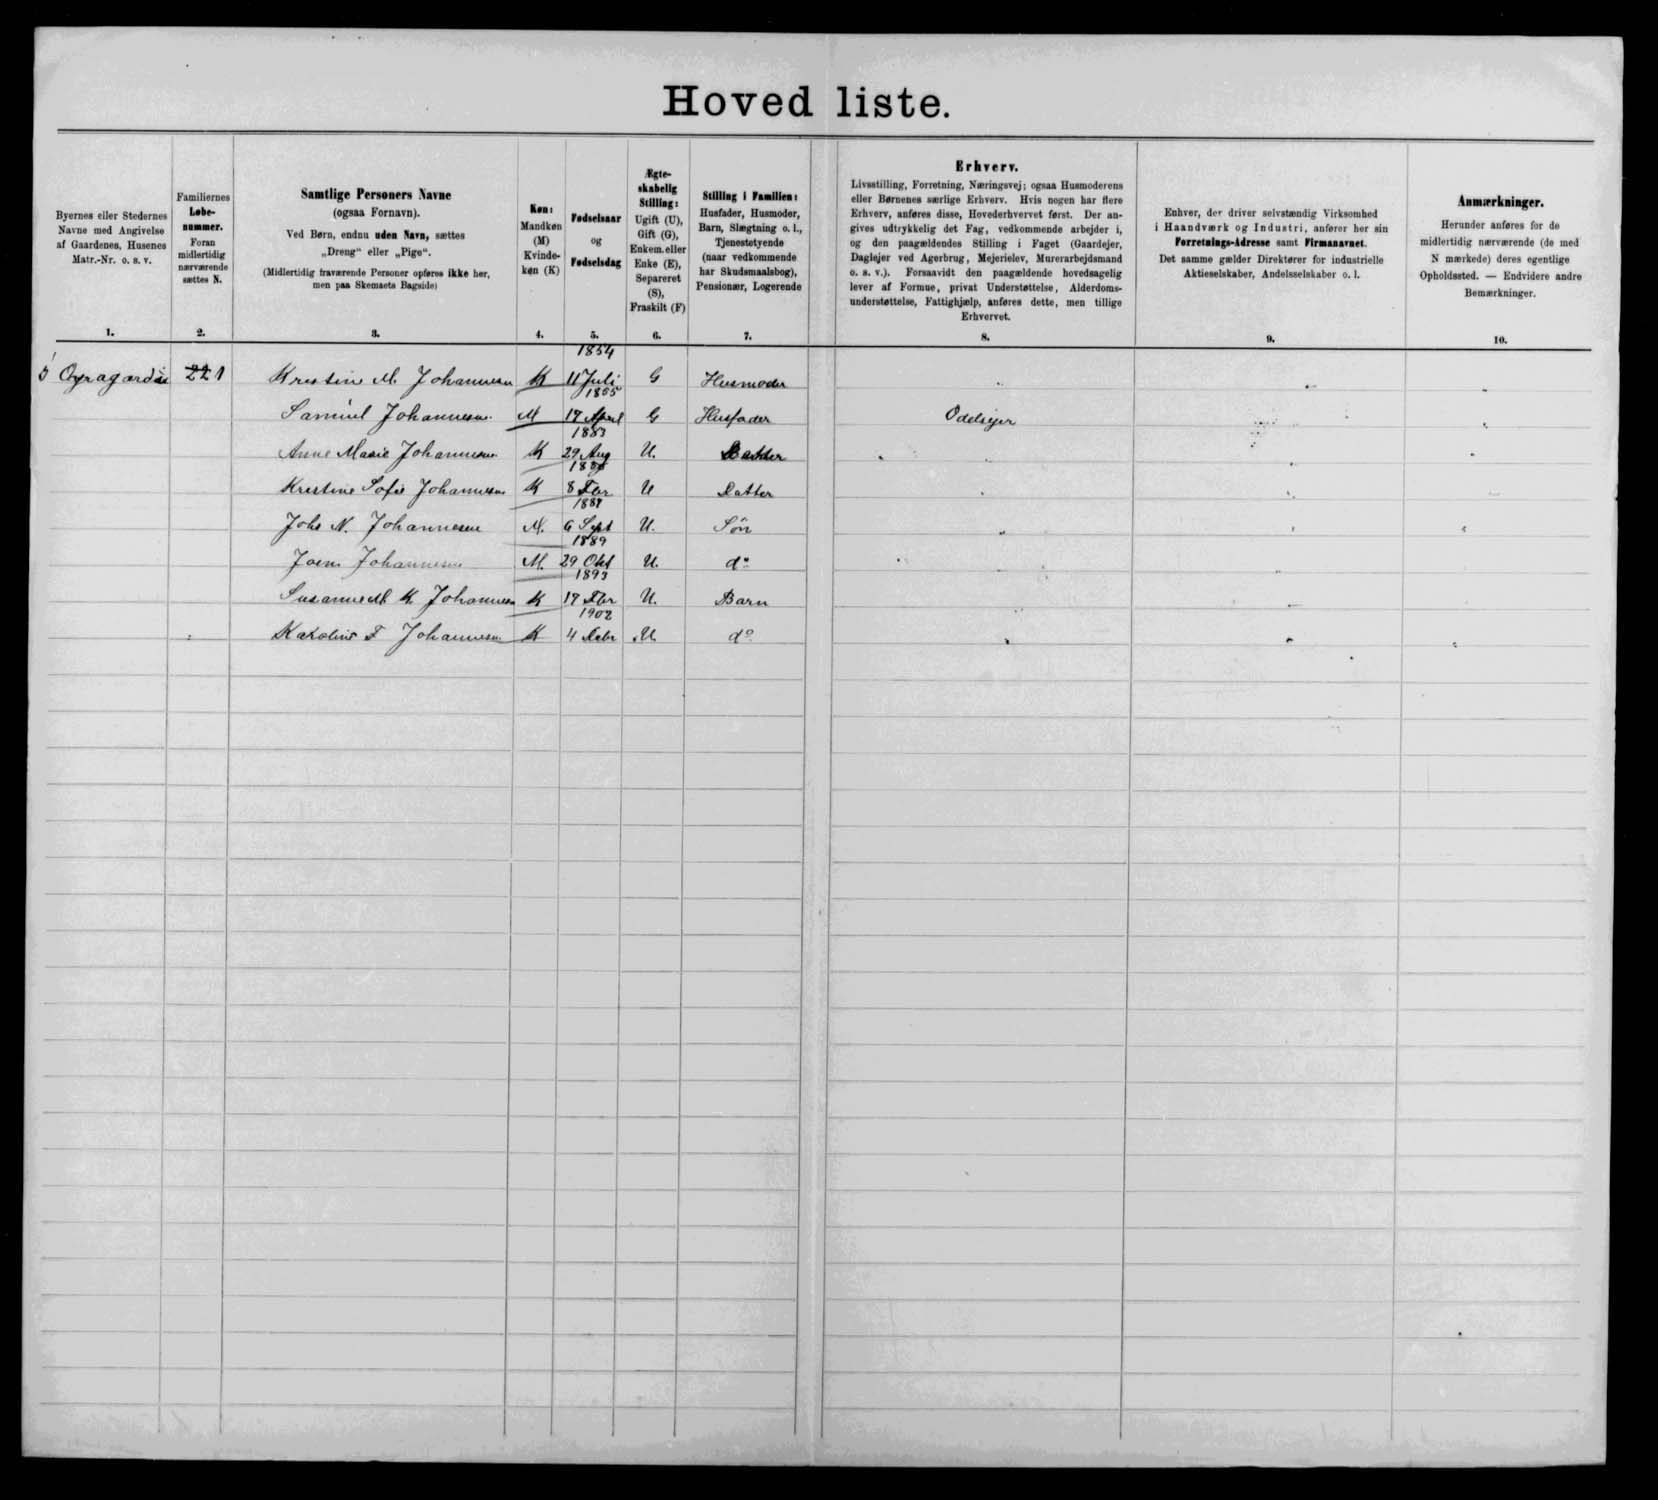 Hoved liste.
Byernes eller Stedernes
Navne med Angivelse
af Gaardenes, Husenes
Matr.-Nr. o. s. v.
1.
Familiernes
Løbe-
nummer.
Foran
midlertidig
nærværende
sættes N.
2.
Samtlige Personers Navne
(ogsaa Fornavn).
Ved Børn, endnu uden Navn, sættes
„Dreng“ eller „Pige“.
(Midlertidig fraværende Personer opføres ikke her,
men paa Skemaets Bagside)
3.
Køn:
Mandkøn
(M)
Kvinde-
køn (K)
4.
Fødselsaar
og
Fødselsdag
5.
Ægte-
skabelig
Stilling:
Ugift (U),
Gift (G),
Enkem. eller
Enke (E),
Separeret
(S),
Fraskilt (F)
6.
Stilling i Familien:
Husfader, Husmoder,
Barn, Slægtning o. l.,
Tjenestetyende
(naar vedkommende
har Skudsmaalsbog),
Pensionær, Logerende
7.
Erhverv.
Livsstilling, Forretning, Næringsvej; ogsaa Husmoderens
eller Børnenes særlige Erhverv. Hvis nogen har flere
Erhverv, anføres disse, Hovederhvervet først. Der an-
gives udtrykkelig det Fag, vedkommende arbejder i,
og den paagældendes Stilling i Faget (Gaardejer,
Daglejer ved Agerbrug, Mejerielev, Murerarbejdsmand
o. s. v.). Forsaavidt den paagældende hovedsagelig
lever af Formue, privat Understøttelse, Alderdoms-
understøttelse, Fattighjælp, anføres dette, men tillige
Erhvervet.
8.
Enhver, der driver selvstændig Virksomhed
i Haandværk og Industri, anfører her sin
Forretnings-Adresse samt Firmanavnet.
Det samme gælder Direktører for industrielle
Aktieselskaber, Andelsselskaber o. l.
9.
Anmærkninger.
Herunder anføres for de
midlertidig nærværende (de med
N mærkede) deres egentlige
Opholdssted. — Endvidere andre
Bemærkninger.
10.
1854
221 Kristine M. Johannesen K 11 Juli G Husmoder
1855
Samuel Johannesen M 17 April G Husfader Odelsejer
1883
Anne Marie Johannesen K 29 Aug U. Datter
Kristine Sofie Johannesen K 8 Fbr U Datter
Johs N. Johannesen M. 6 Sept U. Søn
1889
Joen Johannesen M. 29 Okt U. do
1893
Susanne M. K Johannesen K 17 Fbr U. Barn
1902
Karoline F Johannesen K 4 Debr U. do